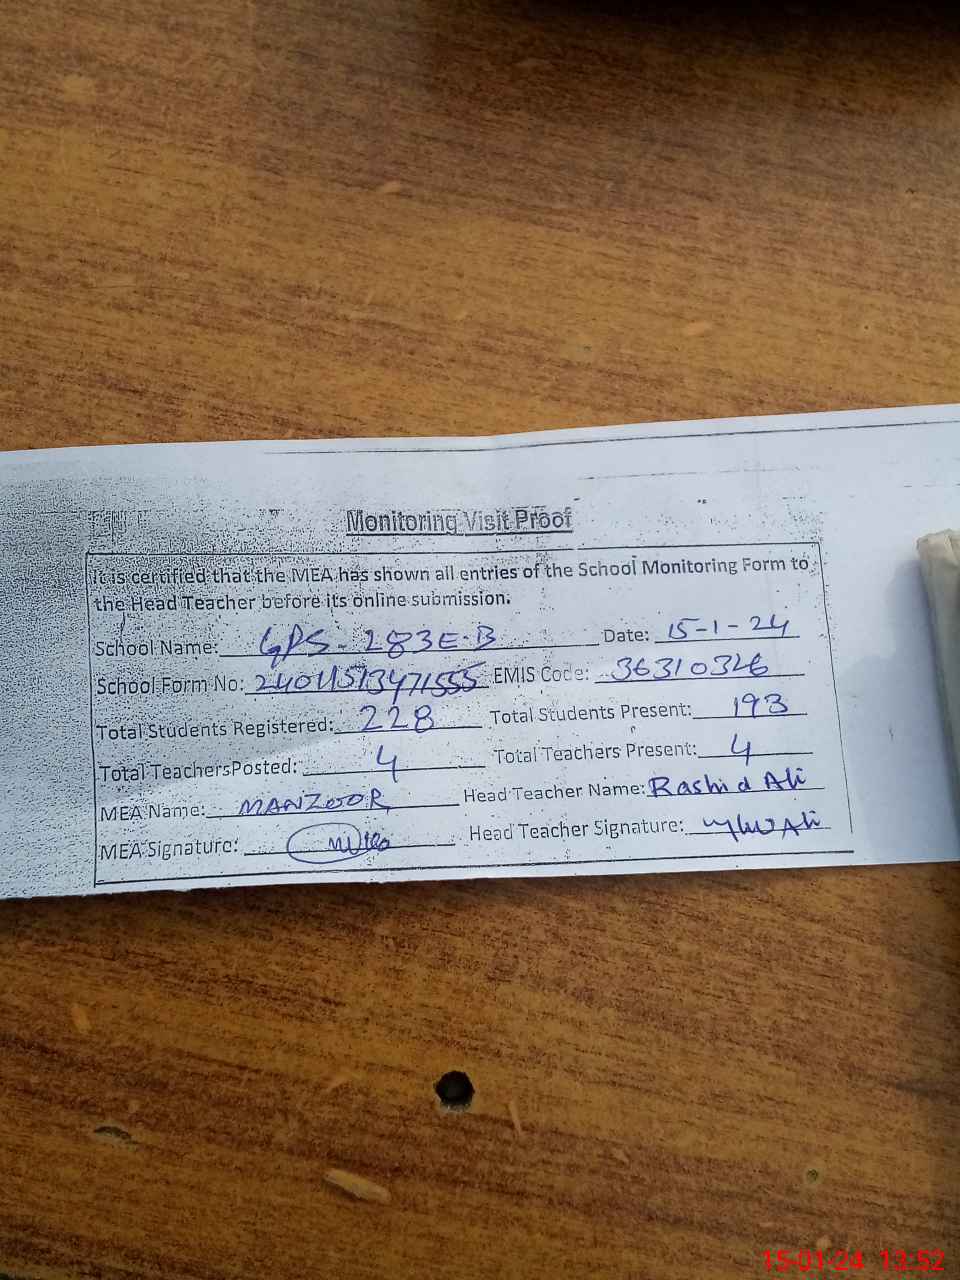 Monitoring Visit Proof
It is certified that the MEA has shown all entries of the School Monitoring Form to
the Head Teacher before its online submission.
School Name: GPS-283E-B Date: 15-1-24
School Form No: EMIS Code: 36310326
Total Students Registered: 228 Total Students Present: 193
Total TeachersPosted: 4 Total Teachers Present: 4
MEA Name: MANZOOR Head Teacher Name: Rashid Ali
MEA Signature: Head Teacher Signature: Ali
15-01-24 13:52